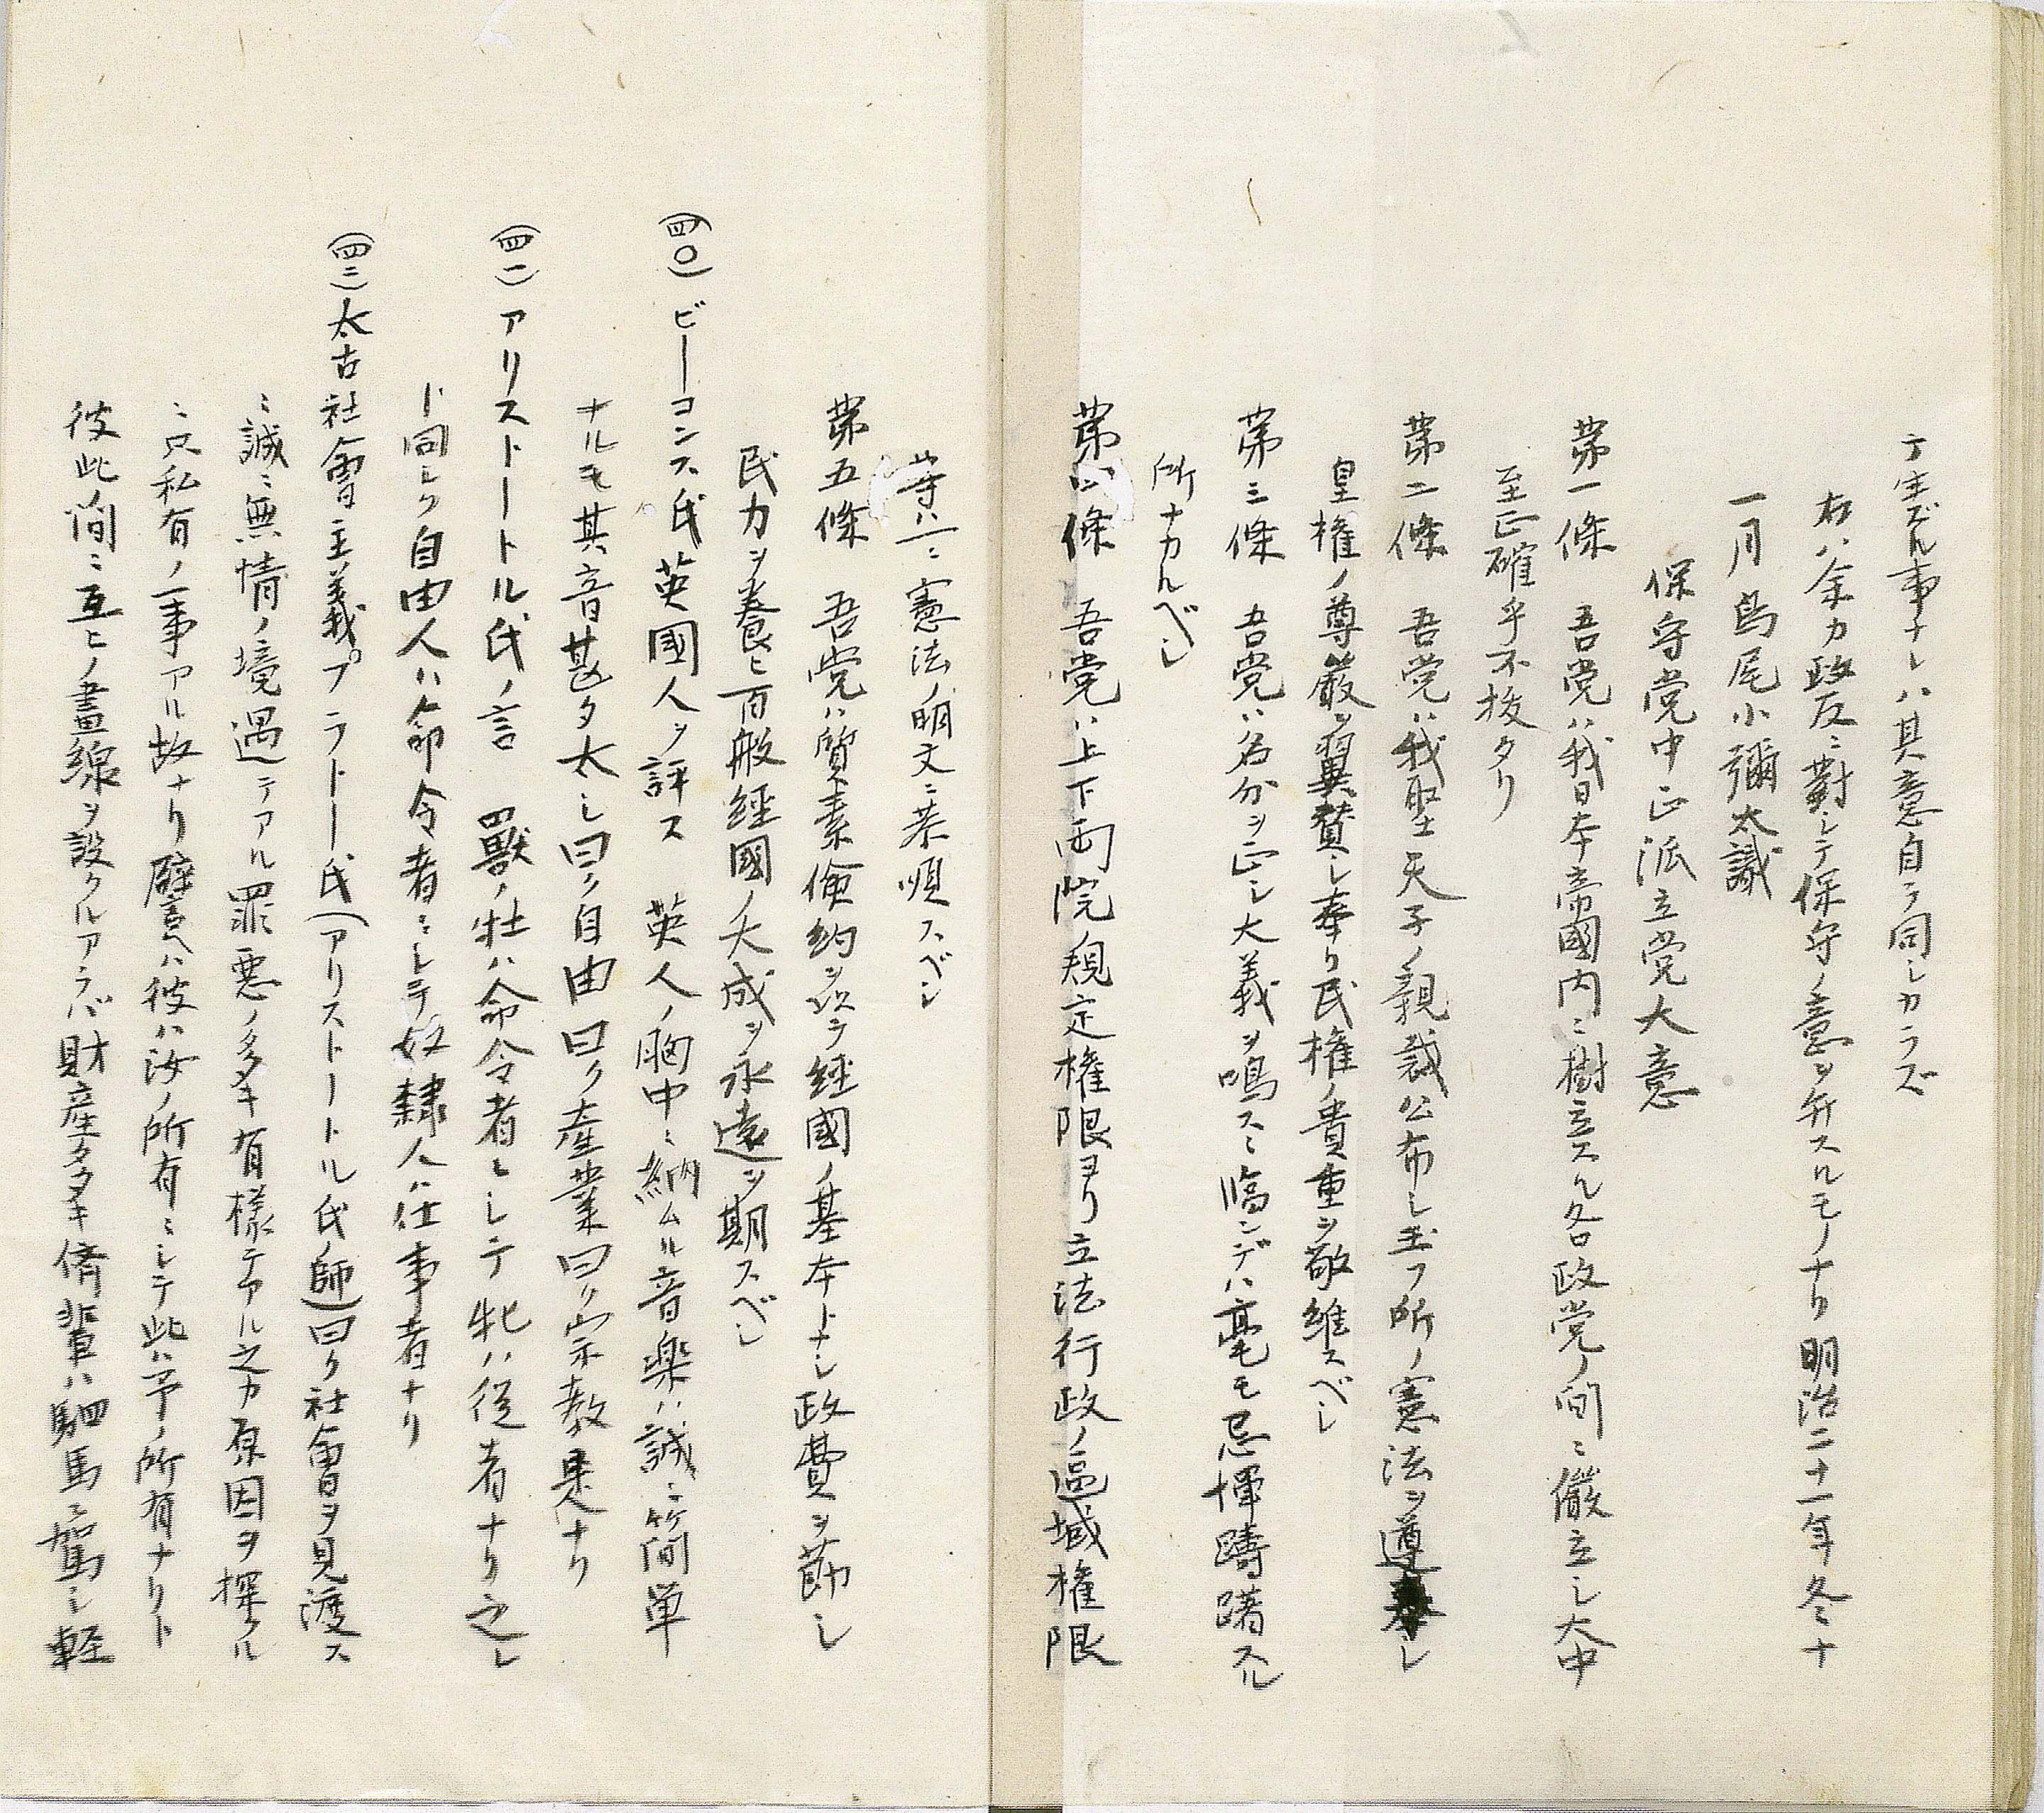 テ生ズル事ナレハ其意自ラ同シカラズ
右ハ余カ政友ニ對シテ保守ノ意ヲ弁スルモノナリ 明治二十一年冬十
一月鳥尾小彌太識
保守党中正派立党大意
第一條 吾党ハ我日本帝國内ニ樹立スル各政党ノ間ニ儼立シ大中
至正確乎不抜タリ
第二條 吾党ハ我聖天子ノ親裁公布シ玉フ所ノ憲法ヲ遵奉シ
皇権ノ尊厳ヲ翼賛シ奉リ民権ノ貴重ヲ敬維スベシ
第三條 吾党ハ名分ヲ正シ大義ヲ鳴スニ臨ンデハ毫モ忌憚躊躇スル
所ナカルベシ
第四條 吾党ハ上下両院ノ規定権限ヨリ立法行政ノ區域権限
等ハ一ニ憲法ノ明文ニ恭順スベシ
第五條 吾党ハ質素倹約ヲ以テ経國ノ基本トナシ政費ヲ節シ
民力ヲ養ヒ百般経國ノ大成ヲ永遠ヲ期スベシ
(四〇)ビーコンス氏英國人ヲ評ス 英人ノ胸中ニ納ムル音楽ハ誠ニ簡単
ナルモ其音甚タ太シ曰ク自由曰ク産業曰ク宗教是ナリ
(四一)アリストートル氏ノ言 獣ノ牡ハ命令者トシテ牝ハ従者ナリ之レ
ト同シク自由人ハ命令者ニシテ奴隷人ハ仕事者ナリ
(四二)太古社會主義プラトー氏(アリストートル氏ノ師)曰ク社會ヲ見渡ス
ニ誠ニ無情ノ境遇テアル罪悪ノ多キ有様テアル之カ原因ヲ探クル
ニ只私有ノ一事アル故ナリ譬ヘハ彼ハ汝ノ所有ニシテ此ハ予ノ所有ナリト
彼此間ニ互ヒノ畫線ヲ設クルアラバ財産タタキ儕輩ハ駟馬ニ駕シ軽